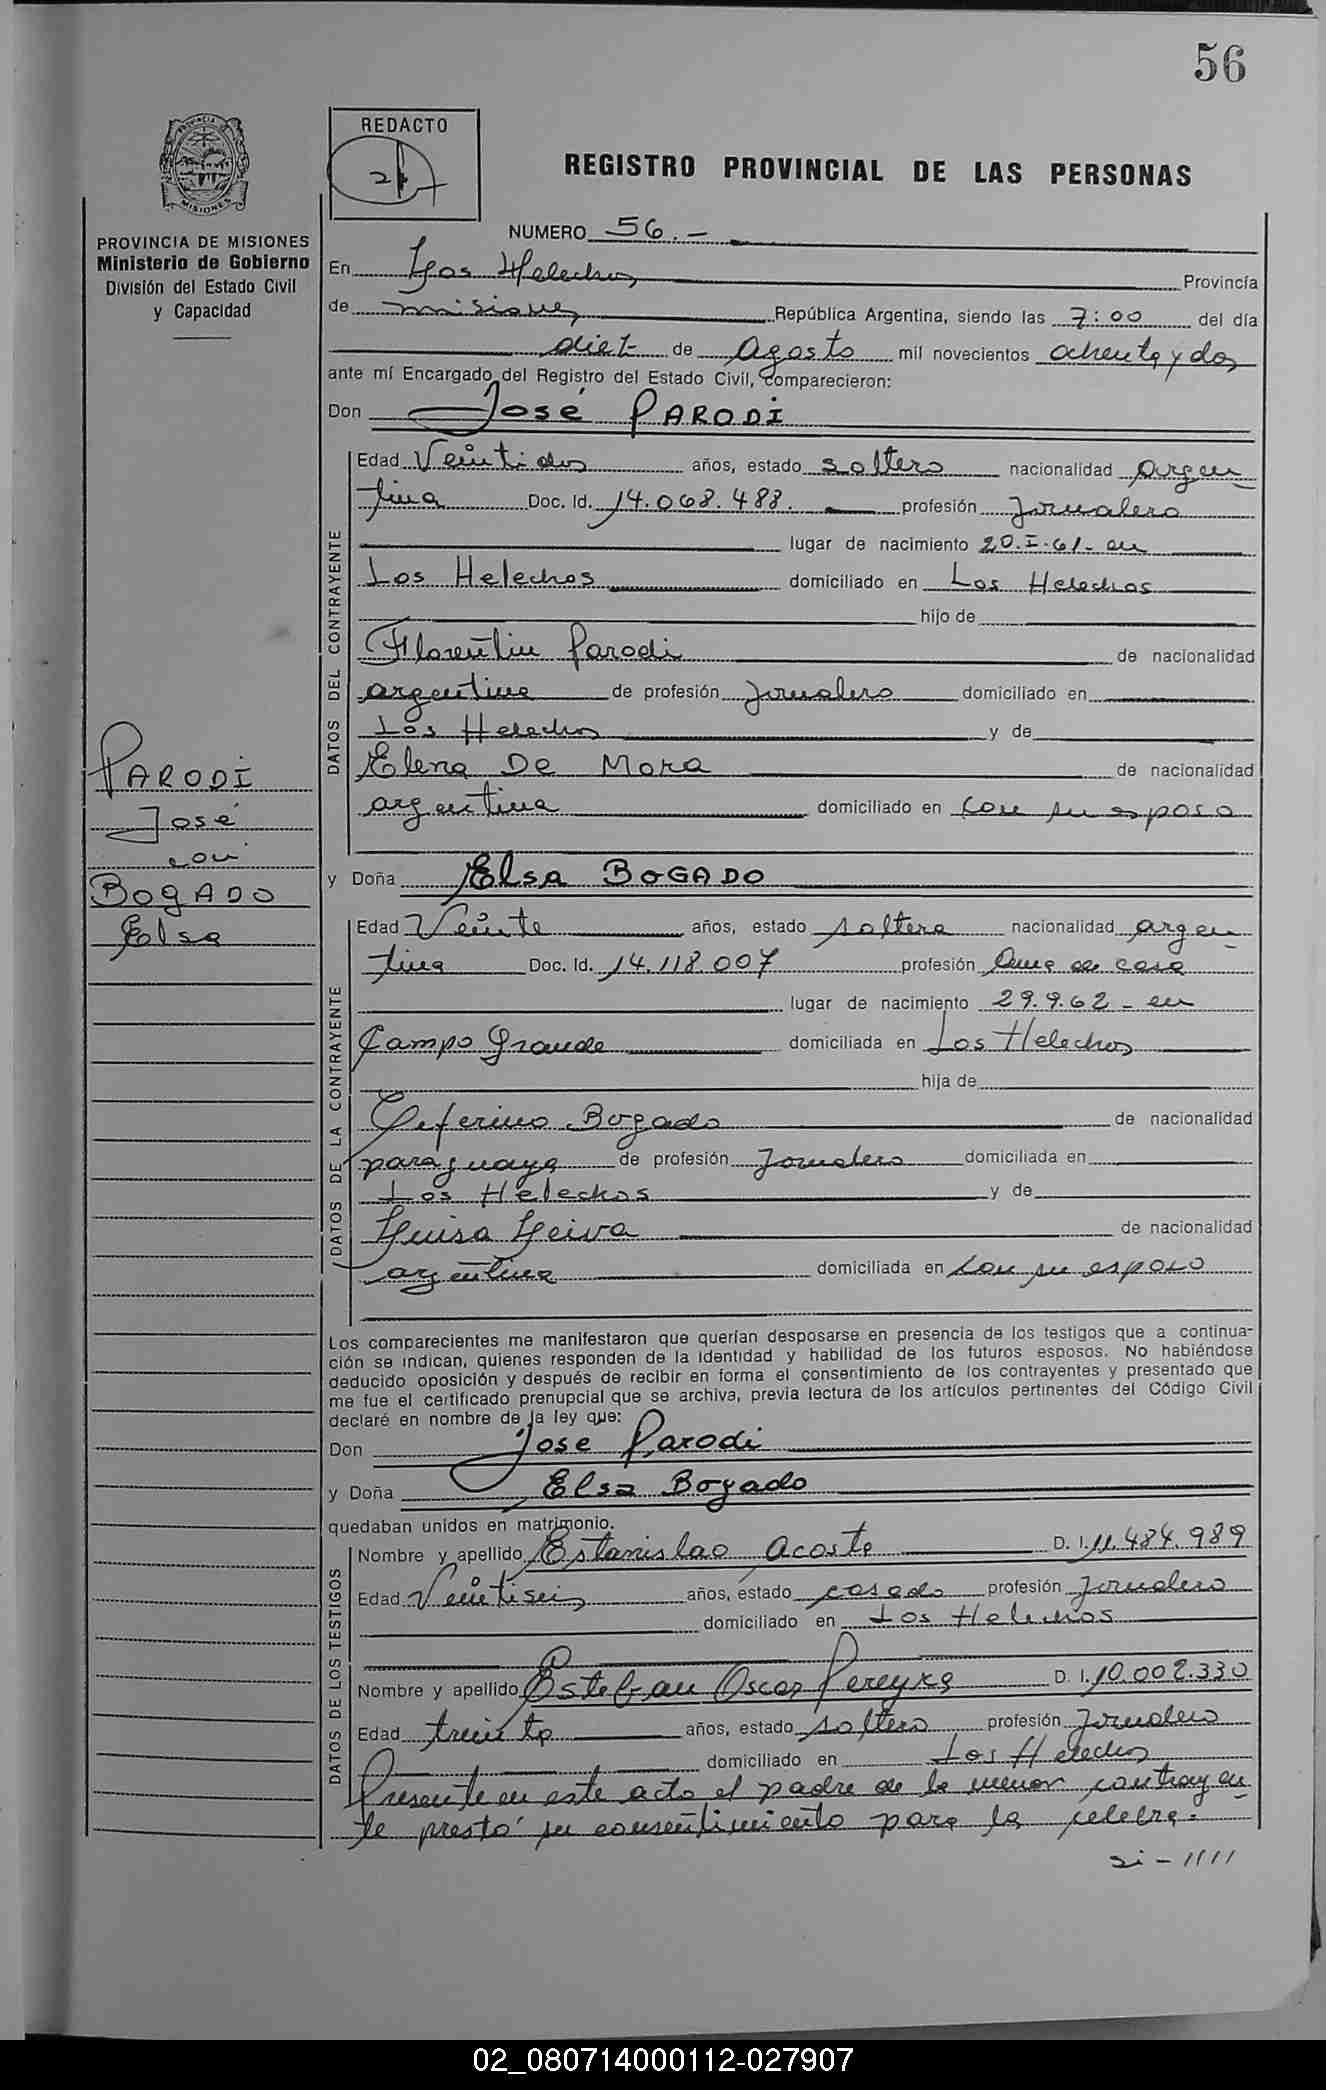 56
REDACTO
REGISTRO PROVINCIAL DE LAS PERSONAS
PROVINCIA DE MISIONES
Ministerio de Gobierno
División del Estado Civil
y Capacidad
NUMERO 56.-
En Los Helechos Provincia
de misiones República Argentina, siendo las 7:00 del día
diez de Agosto mil novecientos ochenta y dos
ante mí Encargado del Registro del Estado Civil, comparecieron:
Don José PARODI
Edad Veintidos años, estado soltero nacionalidad argen
tina Doc. Id. 14.068.488. profesión Jornalero
lugar de nacimiento 20.I.61- en
Los Helechos domiciliado en Los Helechos
hijo de
Florentin Parodi de nacionalidad
argentina de profesión Jornalero domiciliado en
Los Helechos y de
Elena De Mora de nacionalidad
argentina domiciliado en con su esposo
DATOS DEL CONTRAYENTE
PARODI
José
con
BOGADO
Elsa
y Doña Elsa BOGADO
Edad Veinte años, estado soltera nacionalidad argen
tina Doc. Id. 14.118.007 profesión Ama de casa
lugar de nacimiento 29.9.62 - en
Campo Grande domiciliada en Los Helechos
hija de
Ceferino Bogado de nacionalidad
paraguaya de profesión Jornalero domiciliada en
Los Helechos y de
Luisa Leiva de nacionalidad
argentina domiciliada en con su esposo
DATOS DE LA CONTRAYENTE
Los comparecientes me manifestaron que querían desposarse en presencia de los testigos que a continua-
ción se indican, quienes responden de la identidad y habilidad de los futuros esposos. No habiéndose
deducido oposición y después de recibir en forma el consentimiento de los contrayentes y presentado que
me fue el certificado prenupcial que se archiva, previa lectura de los artículos pertinentes del Código Civil
declaré en nombre de la ley que:
Don Jose Parodi
y Doña Elsa Bogado
quedaban unidos en matrimonio.
Nombre y apellido Estanislao Acosta D. I. 11.484.989
Edad Veintiseis años, estado casado profesión Jornalero
domiciliado en Los Helechos
Nombre y apellido Esteban Oscar Pereyra D. I. 10.002.330
Edad treinta años, estado soltero profesión Jornalero
domiciliado en Los Helechos
DATOS DE LOS TESTIGOS
Presente en este acto el padre de la menor contrayen
te prestó su consentimiento para la celebra-
02_080714000112-027907